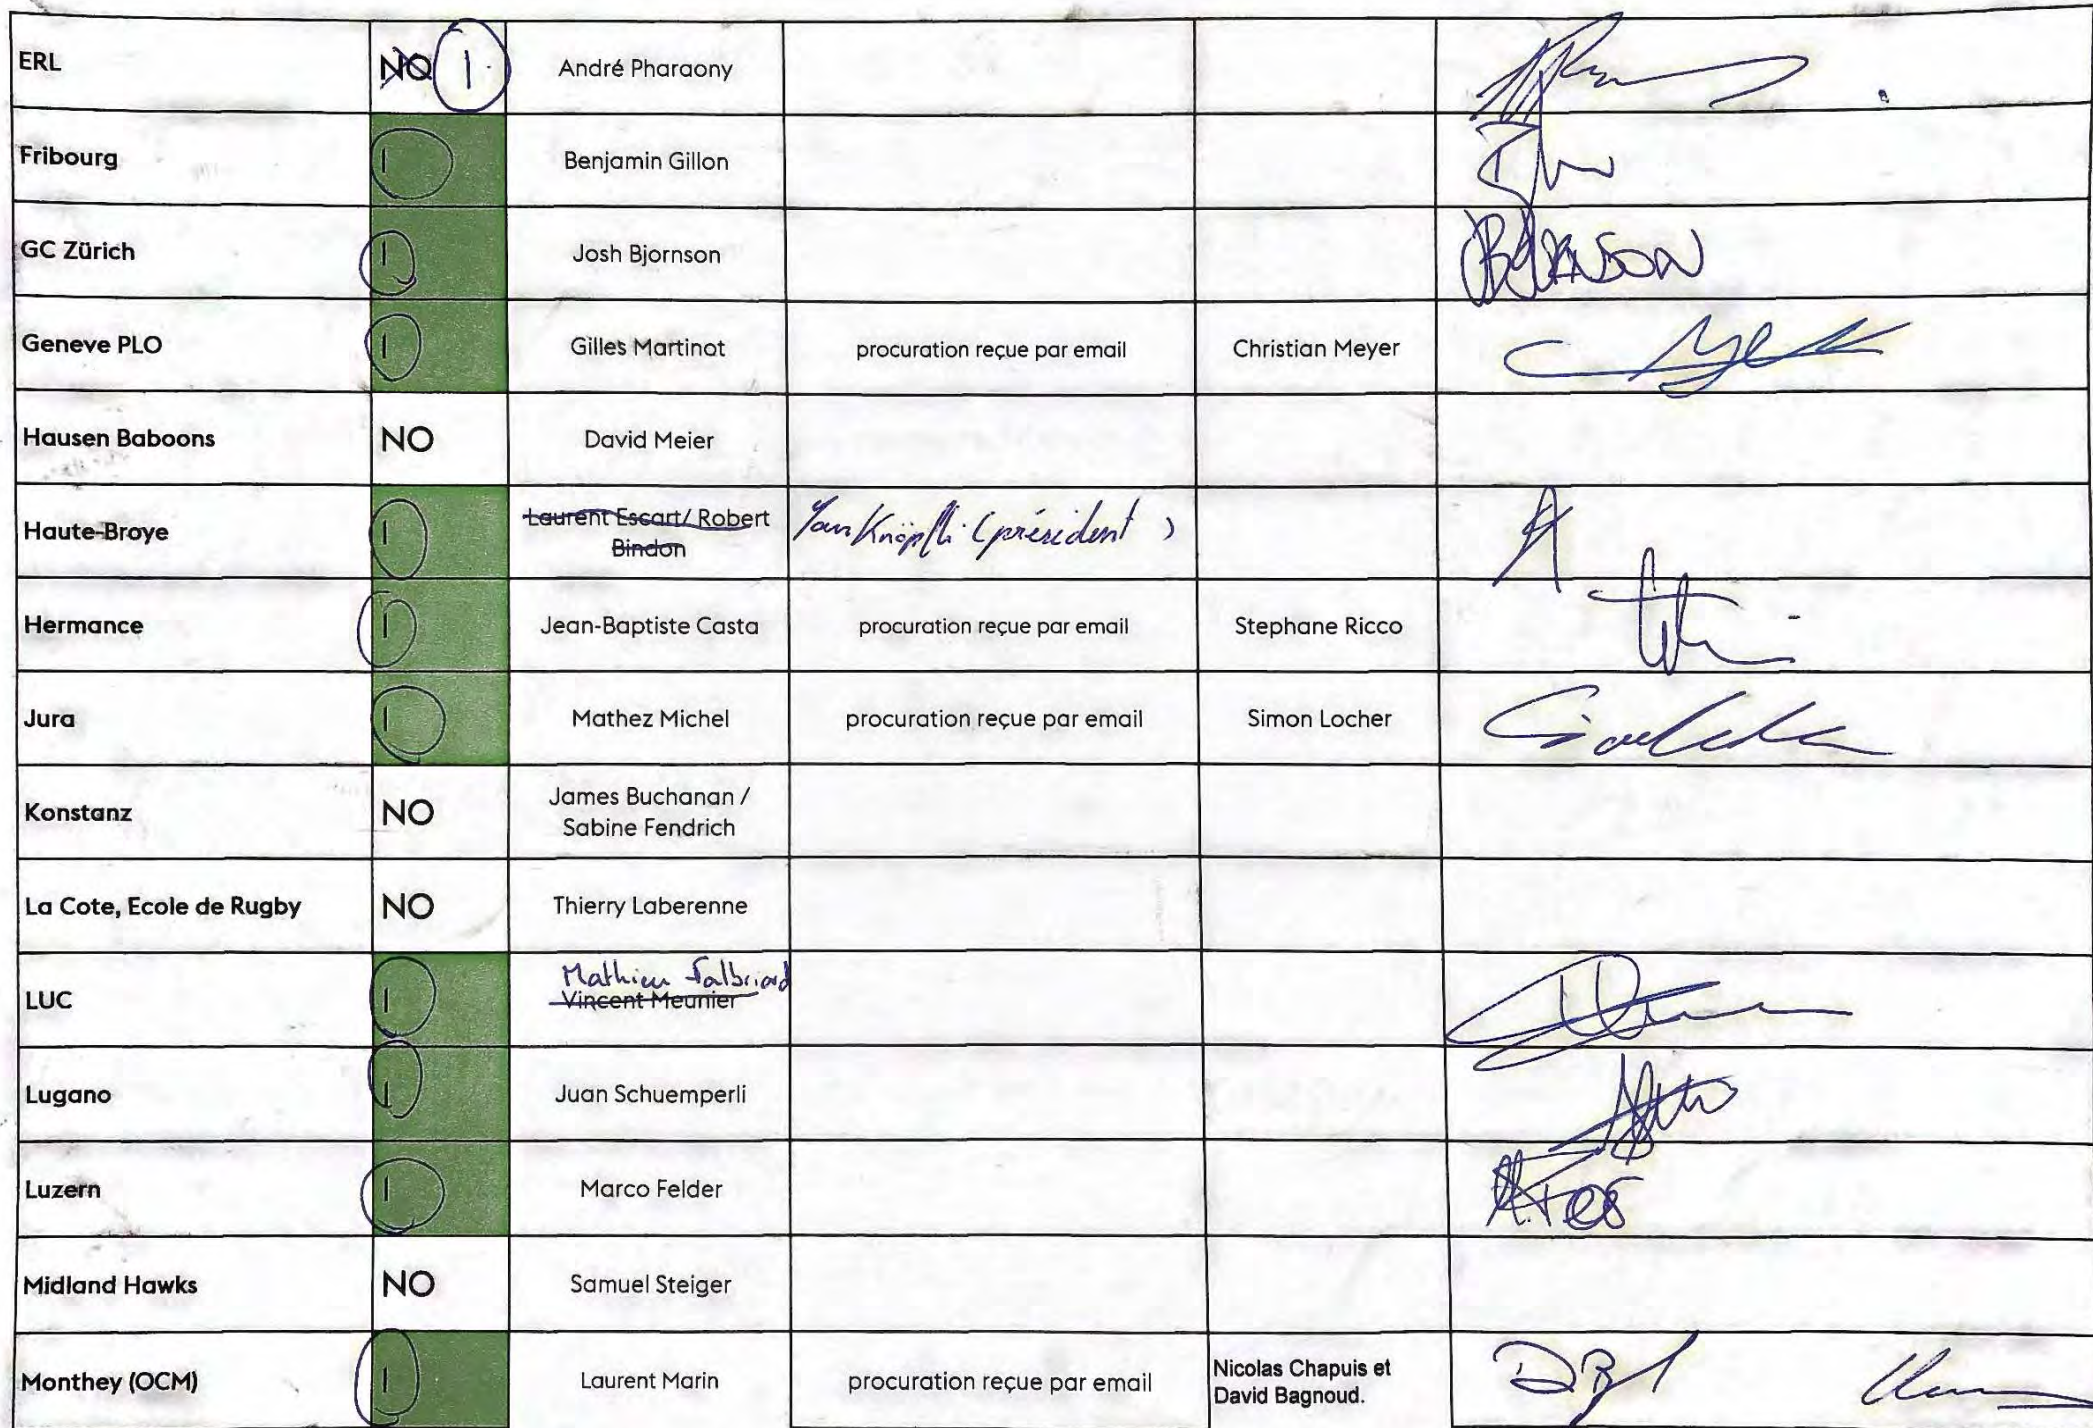 ERL NO 1 André Pharaony
Fribourg 1 Benjamin Gillon
GC Zürich 1 Josh Bjornson BJORNSON
Geneve PLO 1 Gilles Martinot procuration reçue par email Christian Meyer
Hausen Baboons NO David Meier
Haute-Broye 1 Laurent Escart/ Robert
Bindon
Yan Knöpfli (président)
Hermance 1 Jean-Baptiste Casta procuration reçue par email Stephane Ricco
Jura 1 Mathez Michel procuration reçue par email Simon Locher
Konstanz NO James Buchanan /
Sabine Fendrich
La Cote, Ecole de Rugby NO Thierry Laberenne
Mathieu Falbriard
LUC 1 Vincent Meunier
Lugano 1 Juan Schuemperli
Luzern 1 Marco Felder
Midland Hawks NO Samuel Steiger
Monthey (OCM) 1 Laurent Marin procuration reçue par email Nicolas Chapuis et
David Bagnoud.